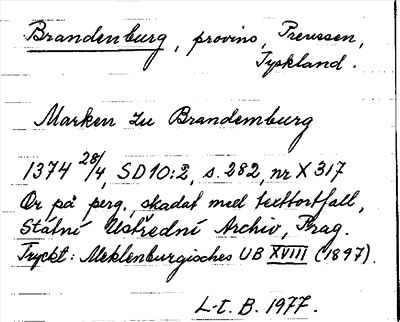 Brandenburg, provins, Preussen,
Tyskland.
Marken zu Brandemburg
1374 28/4, SD 10:2, s. 282, nr X 317
Or på perg, skadat med textbortfall,
Státní Ústřední Archiv, Prag.
Tryckt: Meklenburgisches UB XVIII (1897).
L-t. B. 1977.